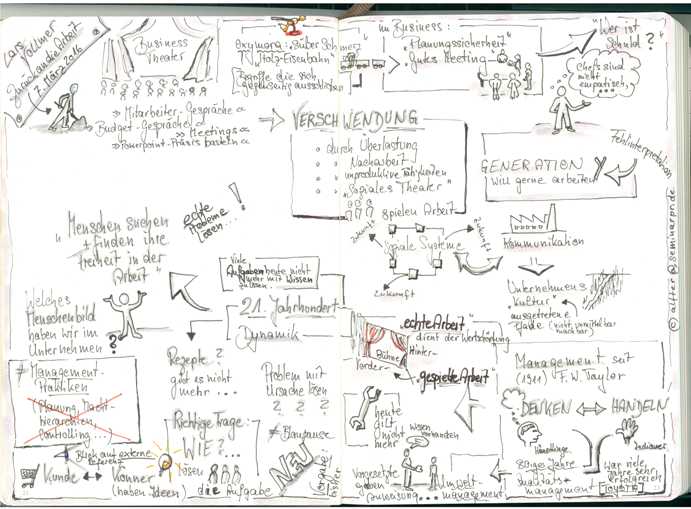 Lars
Vollmer
Zurück an die Arbeit
7. März 2016
Business
Theater
» Mitarbeiter-Gespräche «
Budget-Gespräche «
» Meetings «
» Powerpoint-Präsis basteln «
Oxymora: "süßer Schmerz"
"Holz-Eisenbahn"
Begriffe die sich
gegenseitig ausschließen
im Business:
"Planungssicherheit"
"Gutes Meeting"
"Wer ist
Schuld?"
Chefs sind
nicht
empathisch...
Fehlinterpretation
VERSCHWENDUNG
durch Überlastung
" Nacharbeit
" unproduktive Tätigkeiten
" "Soziales Theater"
spielen Arbeit
GENERATION Y
will gerne arbeiten
"Menschen suchen
+ finden ihre
Freiheit in der
Arbeit"
echte
Probleme
lösen...!
Zukunft
Soziale Systeme
Zukunft
Zukunft
Kommunikation
Unternehmens
"Kultur"
ausgetretene
Pfade
viele
Aufgaben heute nicht
mehr mit Wissen
zu lösen...
21. Jahrhundert
Dynamik
Welches
Menschenbild
haben wir im
Unternehmen
?
"echte Arbeit"
dient der Wertschöpfung
Bühne
Hinter-
Vorder-
"gespielte Arbeit"
≠ Management-
Praktiken
Planung, Macht-
hierarchien,
Controlling...
Rezepte?
gibt es nicht
mehr...
Problem mit
Ursache lösen
? ? ?
≠ Blaupause
Richtige Frage:
WIE?...
lösen
die Aufgabe
Blick auf externe
Referenz
Kunde
Könner
(haben Ideen)
NEU
heute
gilt
nicht
mehr
Management seit
(1911) F. W. Taylor
DENKEN ⇔ HANDELN
Häuptlinge
Indianer
Wissen
vorhanden
Vorgesetzte
geben
Anweisung...
Umwelt-
management
80iger Jahre
Qualitäts-
management
war viele
Jahre sehr
erfolgreich
[TOYOTA]
© alfter @ seminarpr.de